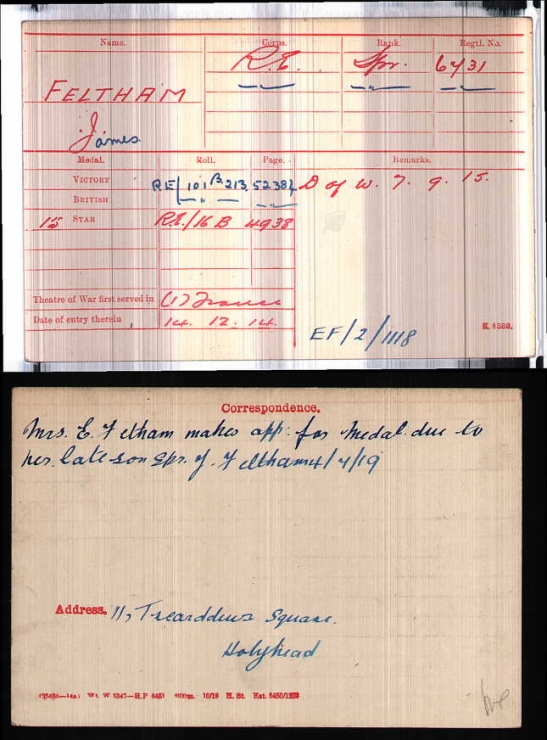 Name. Corps. Rank. Regtl. No.
R.E. Spr. 6731
FELTHAM
James
Medal. Roll. Page. Remarks.
VICTORY R.E/101 B.213. 5238} D of W. 7. 9. 15.
BRITISH
15 STAR R.E./16 B 4938
Theatre of War first served in (1) France
Date of entry therein 14. 12. 14.
EF/2/1118
K. 1380.
Correspondence.
Mrs. E. Feltham makes app: for Medal due to
her late son Spr. J. Feltham 4/7/19
Address. 11, Trearddur Square.
Holyhead